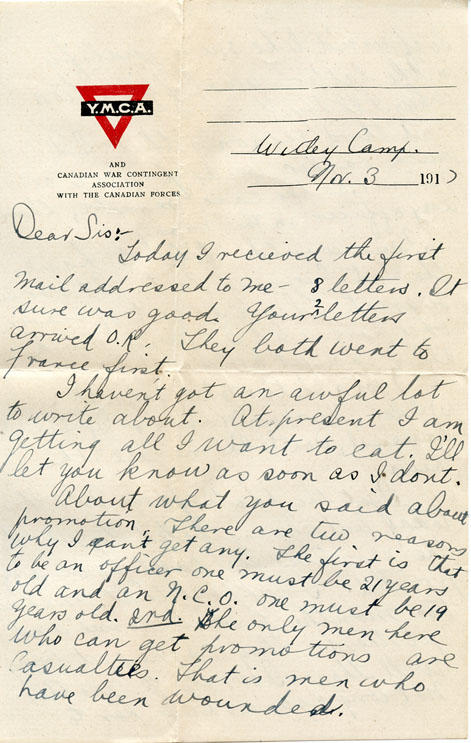 Y.M.C.A.
AND
CANADIAN WAR CONTINGENT
ASSOCIATION
WITH THE CANADIAN FORCES
Witley Camp.
Nov. 3 1917
Dear Sis:-
Today I recieved the first
mail addressed to me - 8 letters. It
sure was good. Your 2 letters
arrived O.K. They both went to
France first.
I haven't got an awful lot
to write about. At present I am
getting all I want to eat. I'll
let you know as soon as I dont.
About what you said about
promotion. There are two reasons
why I can't get any. The first is that
to be an officer one must be 21 years
old and an N.C.O. one must be 19
years old. 2nd. The only men here
who can get promotions are
Casualties. That is men who
have been wounded.